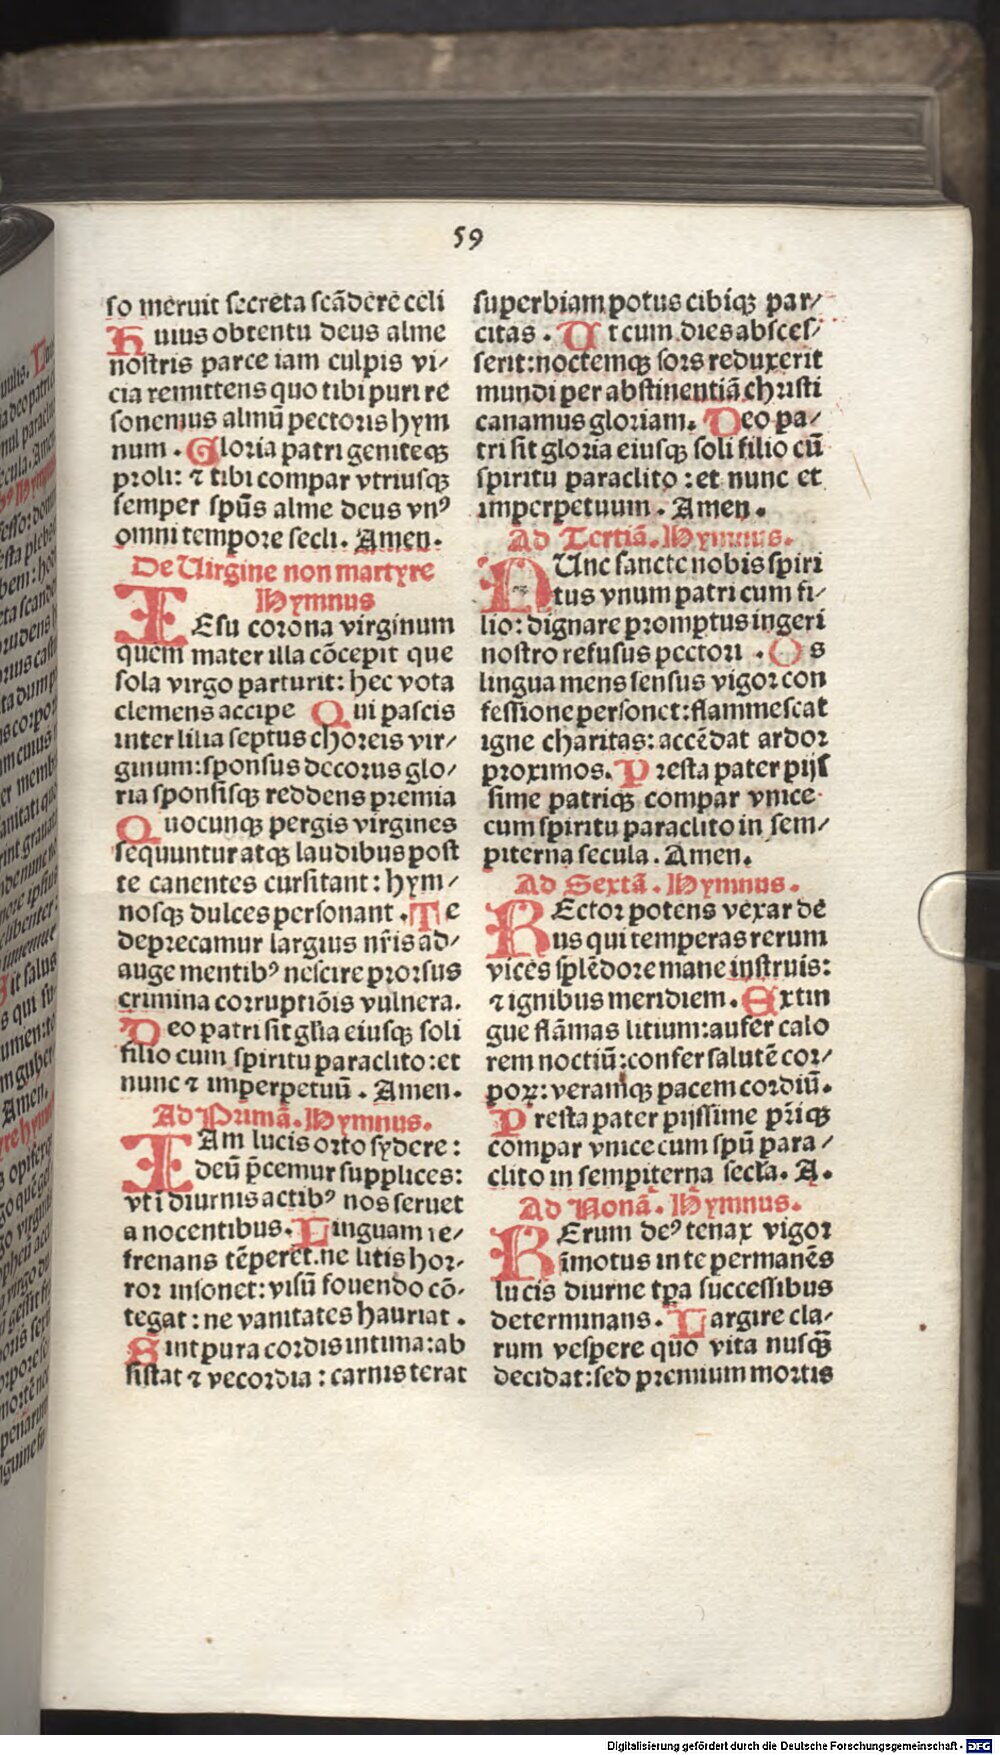 59
so meruit secreta scādere celi
Huius obtentu deus alme
nostris parce iam culpis vi/
cia remittens quo tibi puri re
sonemus almū pectoris hym
num. Gloria patri geniteqꝫ
proli: ⁊ tibi compar vtriusqꝫ
semper spūs alme deus vnꝰ
omni tempore secli. Amen.
De Uirgine non martyre
Hymnus
IEsu corona virginum
quem mater illa cōcepit que
sola virgo parturit: hec vota
clemens accipe Qui pascis
inter lilia septus choreis vir/
ginum: sponsus decorus glo/
ria sponsisqꝫ reddens premia
Quocunqꝫ pergis virgines
sequuntur atqꝫ laudibus post
te canentes cursitant: hym/
nosqꝫ dulces personant. Te
deprecamur largius nr̄is ad/
auge mentibꝰ nescire prorsus
crimina corruptiōis vulnera.
Deo patri sit gl̄ia eiusqꝫ soli
filio cum spiritu paraclito: et
nunc ⁊ imperpetuū. Amen.
Ad Primā. Hymnus.
IAm lucis orto sydere:
deū p̄cemur supplices:
vti diurnis actibꝰ nos seruet
a nocentibus. Linguam re/
frenans tēperet. ne litis hor-
ror insonet: visū fouendo cō-
tegat: ne vanitates hauriat.
Sint pura cordis intima: ab
sistat ⁊ vecordia: carnis terat
superbiam potus cibiqꝫ par/
citas. Ut cum dies absces/
serit: noctemqꝫ sors reduxerit
mundi per abstinentiā christi
canamus gloriam. Deo pa/
tri sit gloria eiusqꝫ soli filio cū
spiritu paraclito: et nunc et
imperpetuum. Amen.
Ad Tertiā. Hymnus.
NUnc sancte nobis spiri
tus vnum patri cum fi/
lio: dignare promptus ingeri
nostro refusus pectori. Os
lingua mens sensus vigor con
fessione personet: flammescat
igne charitas: accēdat ardor
proximos. Presta pater pijs
sime patriqꝫ compar vnice
cum spiritu paraclito in sem/
piterna secula. Amen.
Ad Sextā. Hymnus.
REctor potens verax de
us qui temperas rerum
vices splēdore mane instruis:
⁊ ignibus meridiem. Extin
gue flāmas litium: aufer calo
rem noctiū: confer salutē cor/
poꝝ: veramqꝫ pacem cordiū.
Presta pater pijssime pr̄iqꝫ
compar vnice cum spū para/
clito in sempiterna secl̄a. A.
Ad Nonā. Hymnus.
RErum deꝰ tenax vigor
īmotus in te permanēs
lucis diurne tp̄a successibus
determinans. Largire cla-
rum vespere quo vita nusqꝫ̄
decidat: sed premium mortis
Digitalisierung gefördert durch die Deutsche Forschungsgemeinschaft - DFG